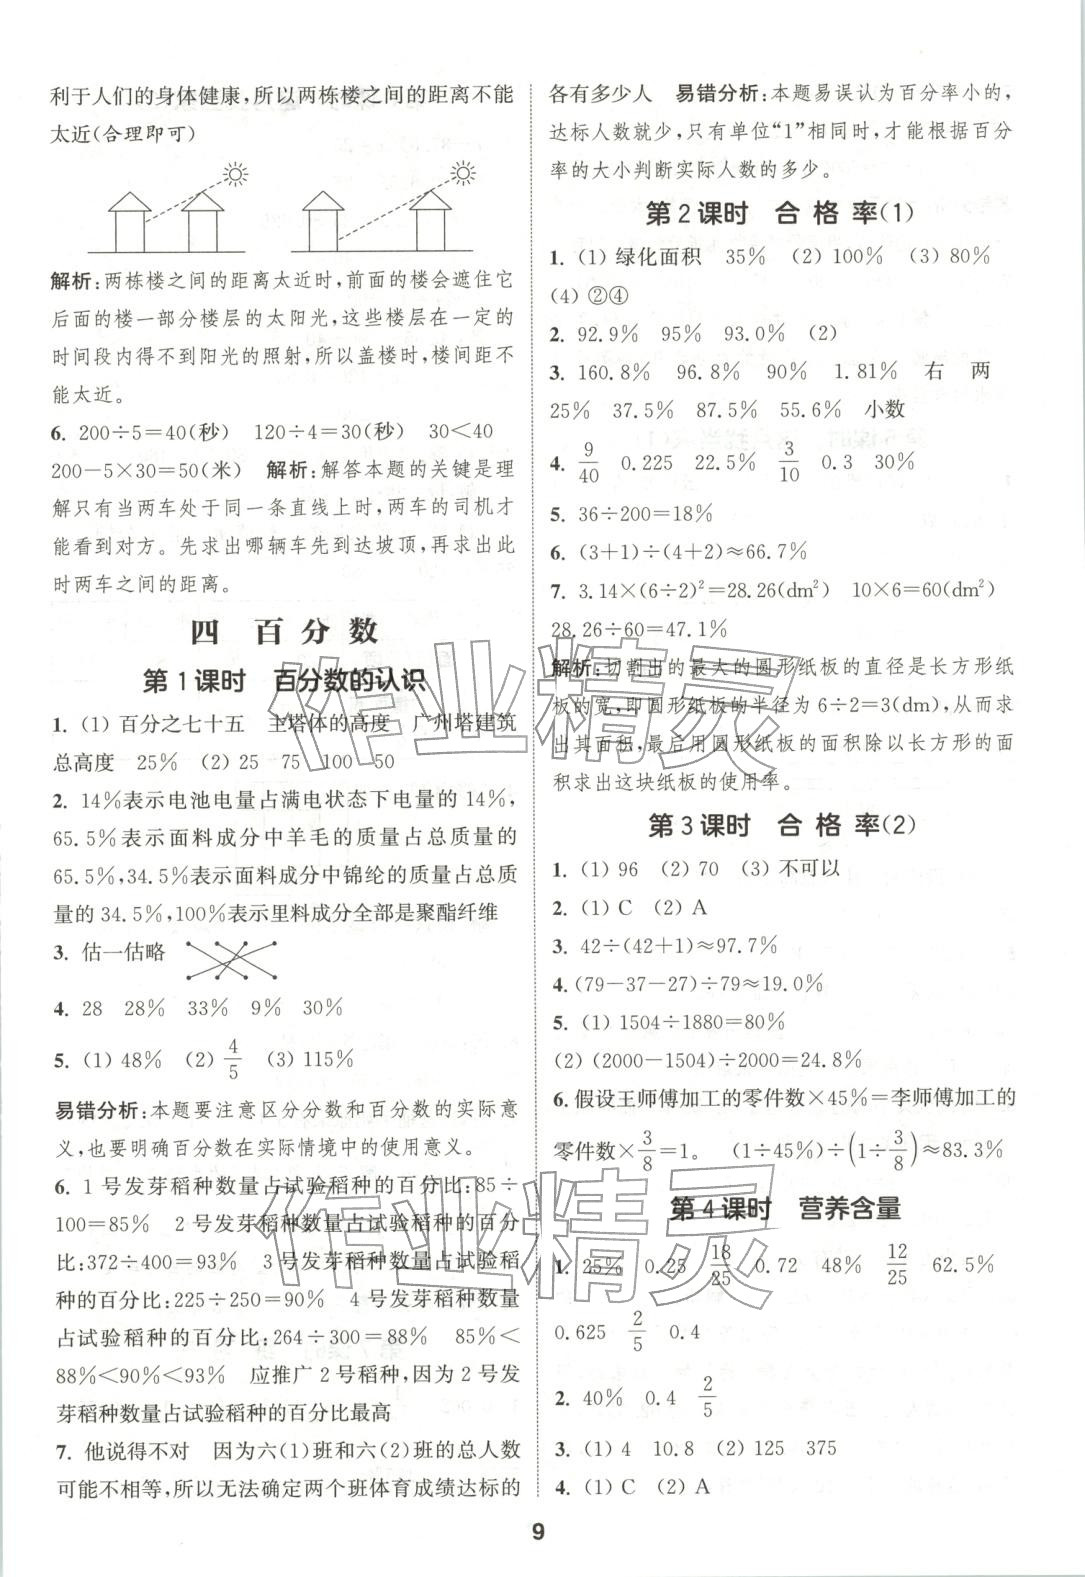 利于人们的身体健康,所以两栋楼之间的距离不能
太近(合理即可)
解析:两栋楼之间的距离太近时,前面的楼会遮住它
后面的楼一部分楼层的太阳光,这些楼层在一定的
时间段内得不到阳光的照射,所以盖楼时,楼间距不
能太近。
6. 200÷5=40(秒) 120÷4=30(秒) 30<40
200-5×30=50(米) 解析:解答本题的关键是理
解只有当两车处于同一条直线上时,两车的司机才
能看到对方。先求出哪辆车先到达坡顶,再求出此
时两车之间的距离。
四 百分数
第1课时 百分数的认识
1. (1) 百分之七十五 主塔体的高度 广州塔建筑
总高度 25% (2) 25 75 100 50
2. 14%表示电池电量占满电状态下电量的14%,
65.5%表示面料成分中羊毛的质量占总质量的
65.5%,34.5%表示面料成分中锦纶的质量占总质
量的34.5%,100%表示里料成分全部是聚酯纤维
3. 估一估略
4. 28 28% 33% 9% 30%
5. (1) 48% (2) 4/5 (3) 115%
易错分析:本题要注意区分分数和百分数的实际意
义,也要明确百分数在实际情境中的使用意义。
6. 1号发芽稻种数量占试验稻种的百分比:85÷
100=85% 2号发芽稻种数量占试验稻种的百分
比:372÷400=93% 3号发芽稻种数量占试验稻
种的百分比:225÷250=90% 4号发芽稻种数量
占试验稻种的百分比:264÷300=88% 85%<
88%<90%<93% 应推广2号稻种,因为2号发
芽稻种数量占试验稻种的百分比最高
7. 他说得不对 因为六(1)班和六(2)班的总人数
可能不相等,所以无法确定两个班体育成绩达标的
各有多少人 易错分析:本题易误认为百分率小的,
达标人数就少,只有单位“1”相同时,才能根据百分
率的大小判断实际人数的多少。
第2课时 合格率(1)
1. (1) 绿化面积 35% (2) 100% (3) 80%
(4) ②④
2. 92.9% 95% 93.0% (2)
3. 160.8% 96.8% 90% 1.81% 右 两
25% 37.5% 87.5% 55.6% 小数
4. 9/40 0.225 22.5% 3/10 0.3 30%
5. 36÷200=18%
6. (3+1)÷(4+2)≈66.7%
7. 3.14×(6÷2)²=28.26(dm²) 10×6=60(dm²)
28.26÷60=47.1%
解析:切割出的最大的圆形纸板的直径是长方形纸
板的宽,即圆形纸板的半径为6÷2=3(dm),从而求
出其面积,最后用圆形纸板的面积除以长方形的面
积求出这块纸板的使用率。
第3课时 合格率(2)
1. (1) 96 (2) 70 (3) 不可以
2. (1) C (2) A
3. 42÷(42+1)≈97.7%
4. (79-37-27)÷79≈19.0%
5. (1) 1504÷1880=80%
(2) (2000-1504)÷2000=24.8%
6. 假设王师傅加工的零件数×45%=李师傅加工的
零件数×3/8=1。 (1÷45%)÷(1÷3/8)≈83.3%
第4课时 营养含量
1. 25% 0.25 18/25 0.72 48% 12/25 62.5%
0.625 2/5 0.4
2. 40% 0.4 2/5
3. (1) 4 10.8 (2) 125 375
4. (1) C (2) A
9
作业精灵
作业精灵